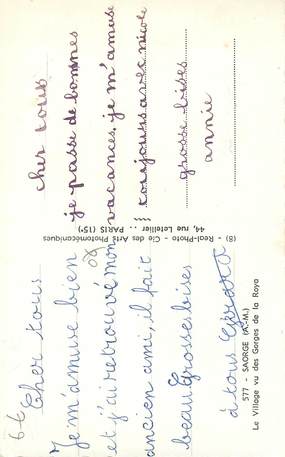 cher tous
je passe de bonnes
vacances. je m'amuse
toujours avec nicole
grosse bises
annie
(8) - Real-Photo - Cie des Arts Photomécaniques
44, rue Letellier .. PARIS (15e)
66
Cher tous
Je m'amuse bien
et j'ai retrouvé mon
ancien ami, il fait
beau Grosses bises
à tous Gérard
577 - SAORGE (A.-M.)
Le Village vu des Gorges de la Roya